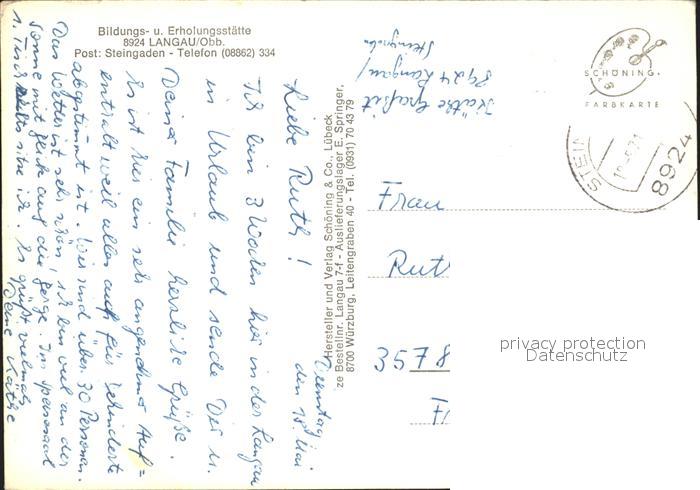 Bildungs- u. Erholungsstätte
8924 LANGAU/Obb.
Post: Steingaden - Telefon (08862) 334
Dienstag
den 18. Mai
Liebe Ruth!
Ich bin 3 Wochen hier in der Langau
in Urlaub und sende Dir u.
Deiner Familie herzliche Grüße.
Es ist hier ein sehr angenehmer Auf=
enthalt weil alles auf für Behinderte
abgestimmt ist. Wir sind über 30 Personen.
Das Wetter ist sehr schön, ich bin viel an der
Sonne mit Blick auf die Berge. Im Speisesaal
1. Tisch rechts sitze ich. Es grüßt vielmals
Deine Käthe
Hersteller und Verlag Schöning & Co., Lübeck
Bestellnr. Langau 7-f - Auslieferungslager E. Springer,
8700 Würzburg, Leitengraben 40 - Tel. (0931) 70 43 79
Käthe
8924 Langau/
Steingaden
SCHÖNING
FARBKARTE
STEIN
8924
Frau
Rut
3578
privacy protection
Datenschutz